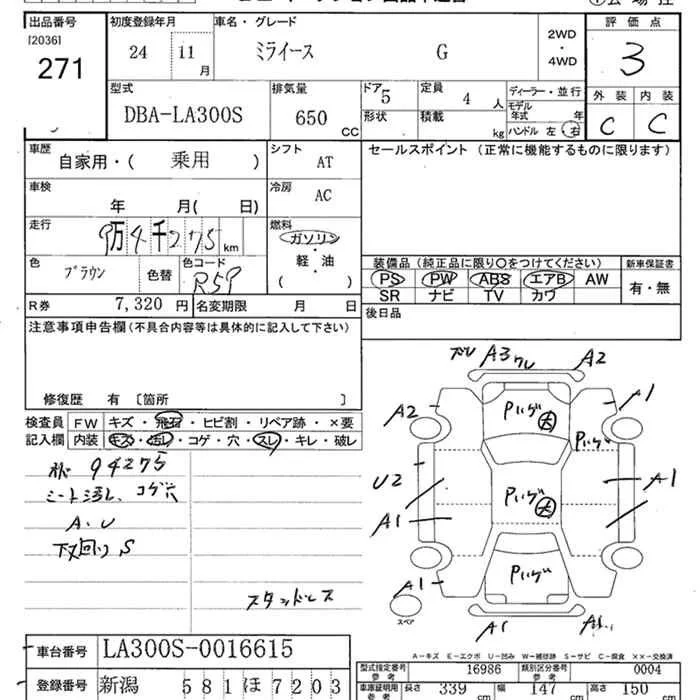 出品番号 初度登録年月 車名・グレード 2WD・4WD 評価点
[2036]
271 24 11月 ミライース G 3
型式 排気量 ドア 定員 ディーラー・並行 外装 内装
DBA-LA300S 650 CC 5 4人 モデル年式 年
形状 積載 kg ハンドル 左・右 C C
車歴 自家用・( 乗用 ) シフト AT セールスポイント (正常に機能するものに限ります)
車検 年 月( 日) 冷房 AC
走行 9万4千275 km 燃料 ガソリン・軽・油 ( )
色 ブラウン 色替 色コード R59
装備品 (純正品に限り○をつけてください) 新車保証書
PS PW ABS エアB AW 有・無
SR ナビ TV カワ
R券 7,320 円 名変期限 月 日 後日品
注意事項申告欄 (不具合内容等は具体的に記入して下さい)
修復歴 有 〔箇所 〕
検査員記入欄 FW キズ・飛石・ヒビ割・リペア跡・×要
内装 キズ・汚レ・コゲ・穴・スレ・キレ・破レ
94275
シート汚レ、コゲ穴
A.U
下回り S
スタッドレス
A3 ワレ A2
A2 A1
U2 A1
A1
A1
A1
スペア
A-キズ E-エクボ U-凹み W-補修跡 S-サビ C-腐食 ××-交換済
車台番号 LA300S-0016615
型式指定番号 参考 16986 類別区分番号 参考 0004
登録番号 新潟 581 ほ 7203
車庫証明用 参考 長さ 339 cm 幅 147 cm 高さ 150 cm